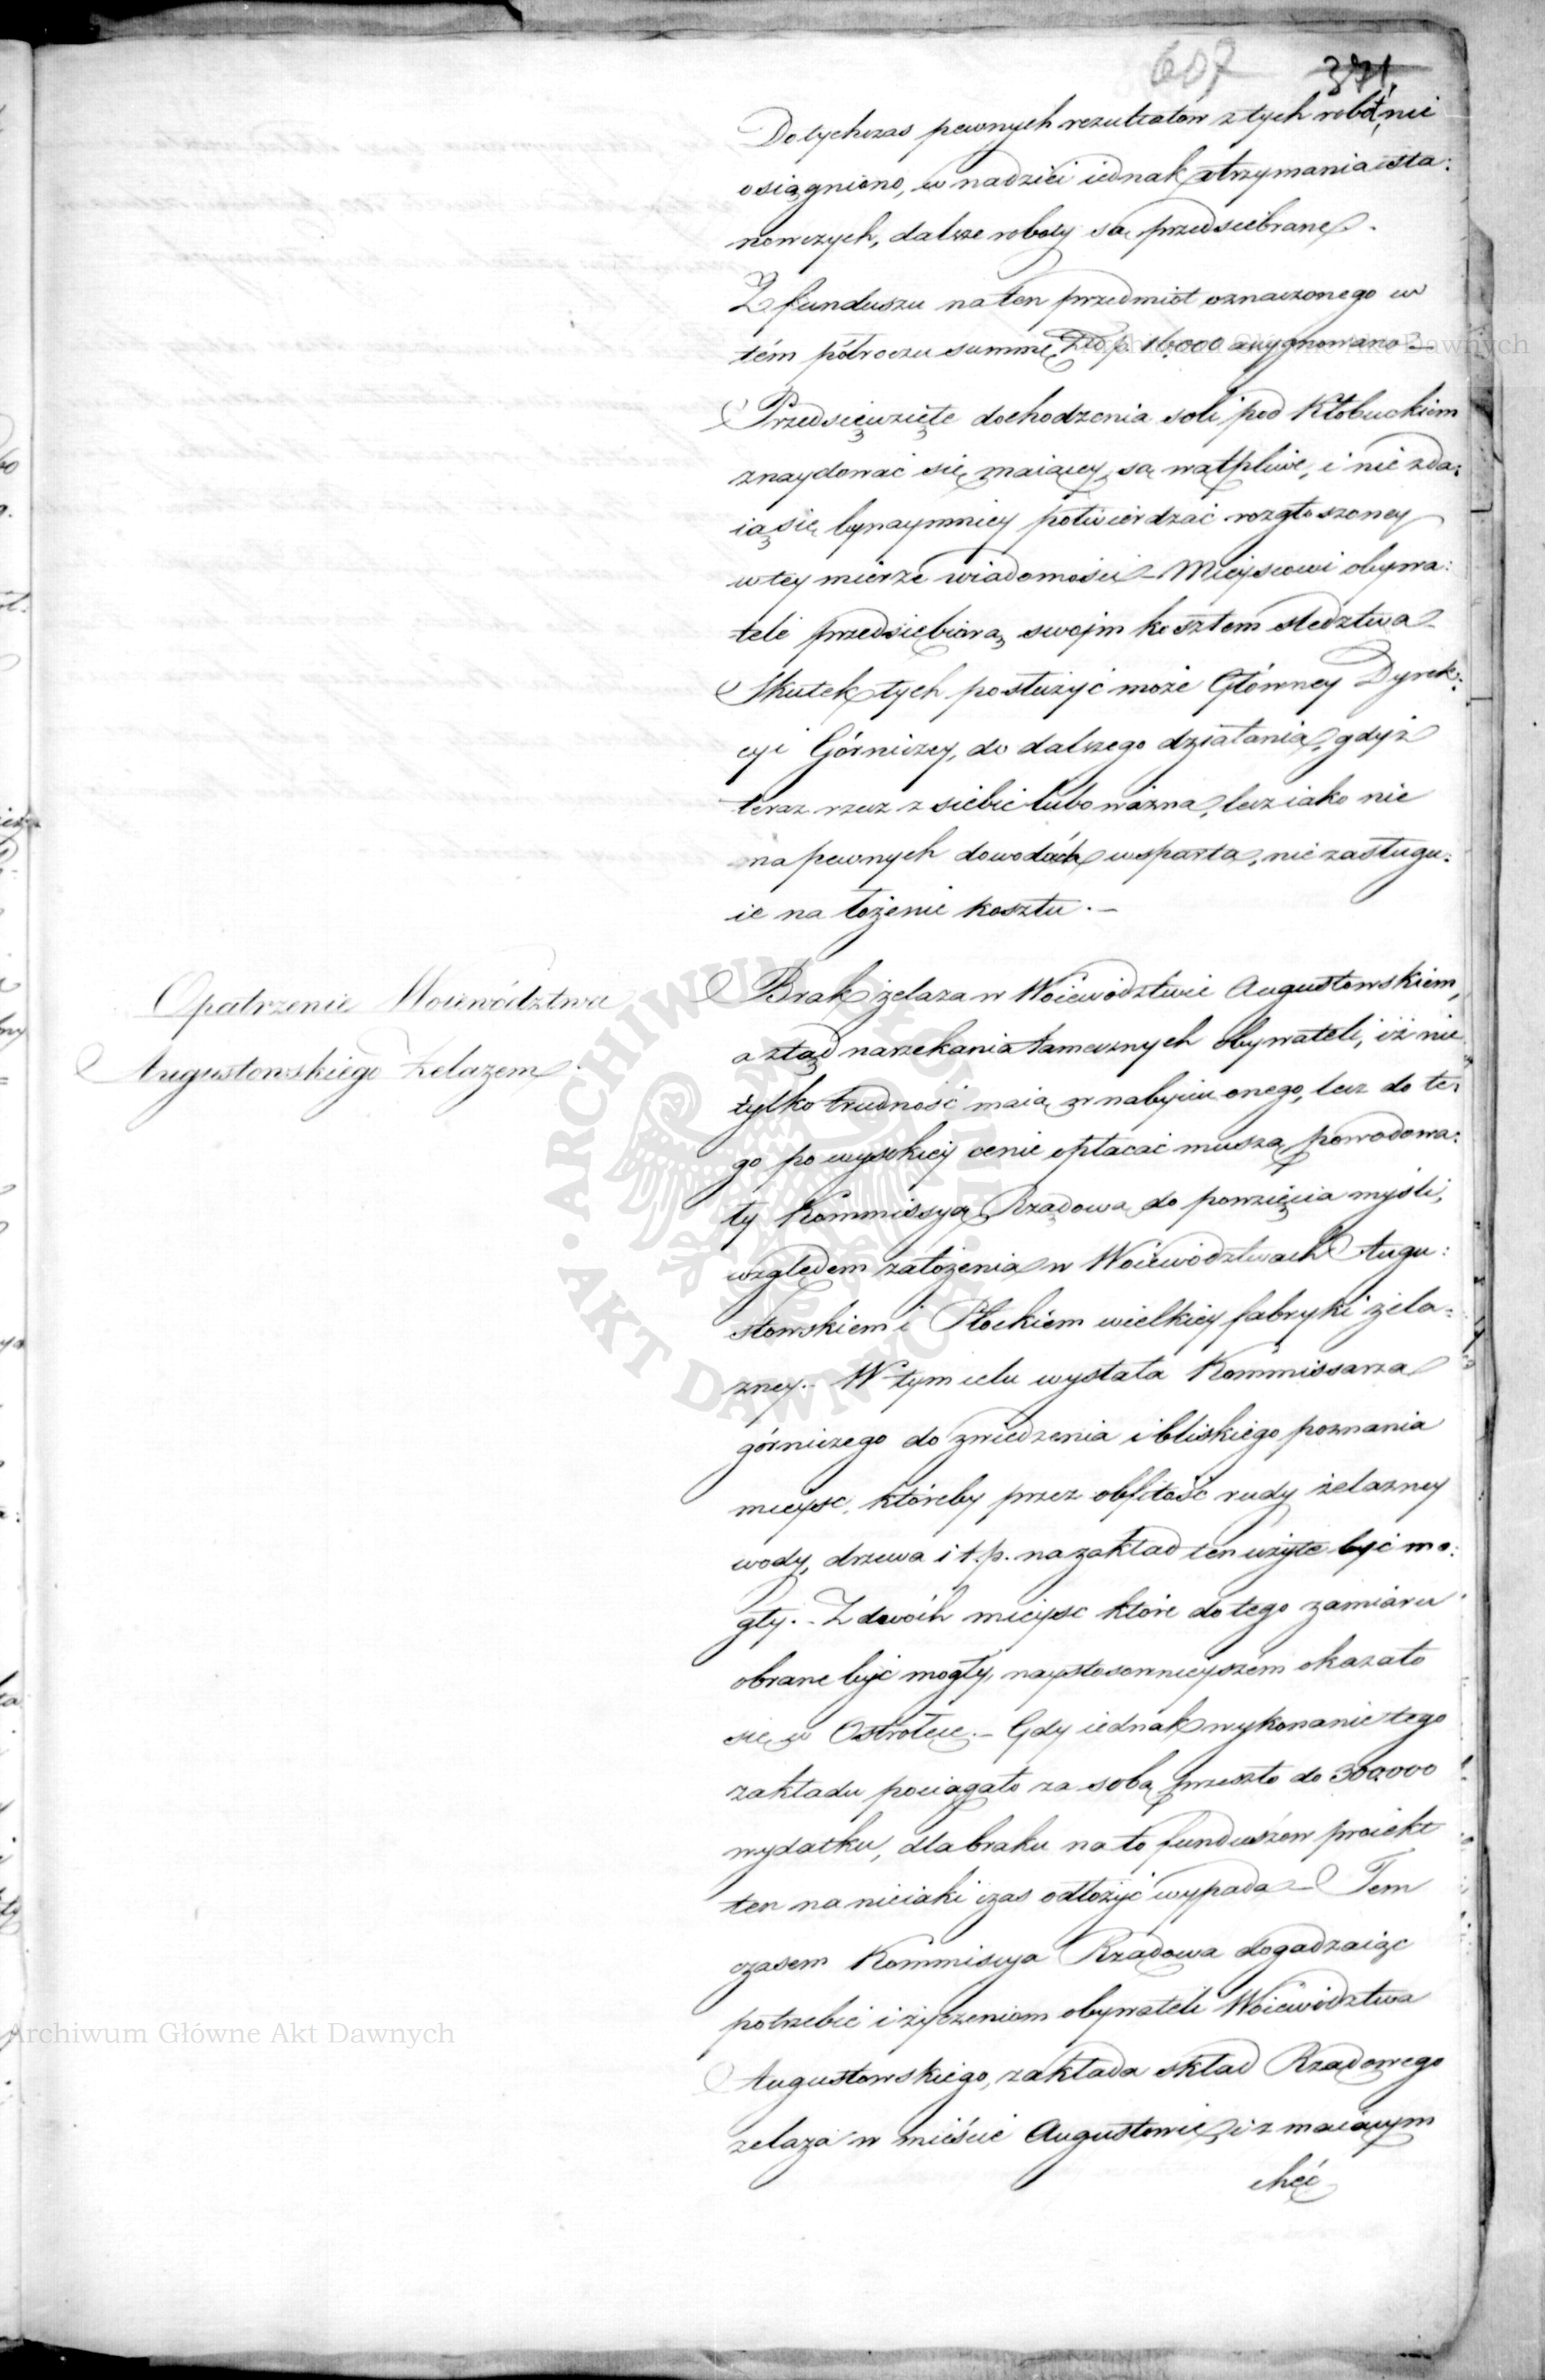 607 371.
Dotychczas pewnych rezultatów z tych robót, nie
osiągniono, w nadziei iednak otrzymania sta:
nowczych, dalsze roboty są przedsiebrane.
Z funduszu na ten przedmiot oznaczonego w
tém półroczu summę Złp. 16,000 assygnowano
Przedsięwzięte dochodzenia soli pod Kłobuckiem
znaydować się maiącey, są wątpliwe, i nie zda:
ią się bynaymniey potwierdzać rozgłoszoney
w tey mierze wiadomości – Mieyscowi obywa:
tele przedsiębiorą swoim kosztem śledztwa
Skutek tych posłużyć może Głównéy Dyrek:
cyi Górniczey, do dalszego działania, gdyż
teraz rzecz z siebie lubo ważna, lecz iako nie
na pewnych dowodach wsparta, nie zasługu:
ie na łożenie kosztu. –
Opatrzenie Woiewództwa
Augustowskiego Żelazem.
Brak żelaza w Woiewództwie Augustowskiem,
a ztąd narzekania tamecznych obywateli, iż nie
tylko trudność maią w nabyciu onego, lecz do te:
go po wysokiey cenie opłacać muszą, powodowa:
ły Kommissyą Rządową do powzięcia myśli,
względem założenia w Woiewództwach Augu:
stowskiem i Płockiem wielkiey fabryki żela:
zney. – W tym celu wysłała Kommissarza
górniczego do zwiedzenia i bliskiego poznania
mieysc, któreby przez obfitość rudy żelazney
wody, drzewa i t. p. na zakład ten użyte być mo:
gły. – Z dwóch mieysc które do tego zamiaru
obrane być mogły, naystosownieyszem okazało
się w Ostrołęce. – Gdy iednak wykonanie tego
zakładu pociągało za sobą przeszło do 300,000
wydatku, dla braku na to funduszów proiekt
ten na nieiaki czas odłożyć wypada – Tem
czasem Kommissya Rządowa dogadzaiąc
potrzebie i życzeniom obywateli Woiewództwa
Augustowskiego, zakłada skład Rządowego
żelaza w mieście Augustowie, i z maiącym
chęć
Archiwum Główne Akt Dawnych
Archiwum Główne Akt Dawnych
ARCHIWUM GŁÓWNE · AKT DAWNYCH ·